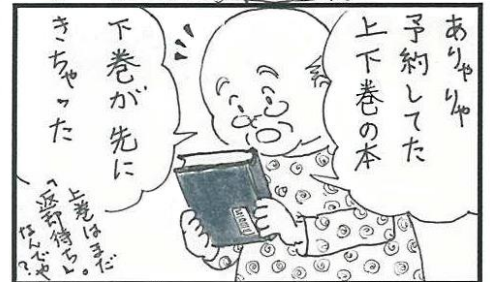 ありゃりゃ
予約してた
上下巻の本
下巻が先に
きちゃった
上巻はまだ
「返却待ち」。
なんでや?